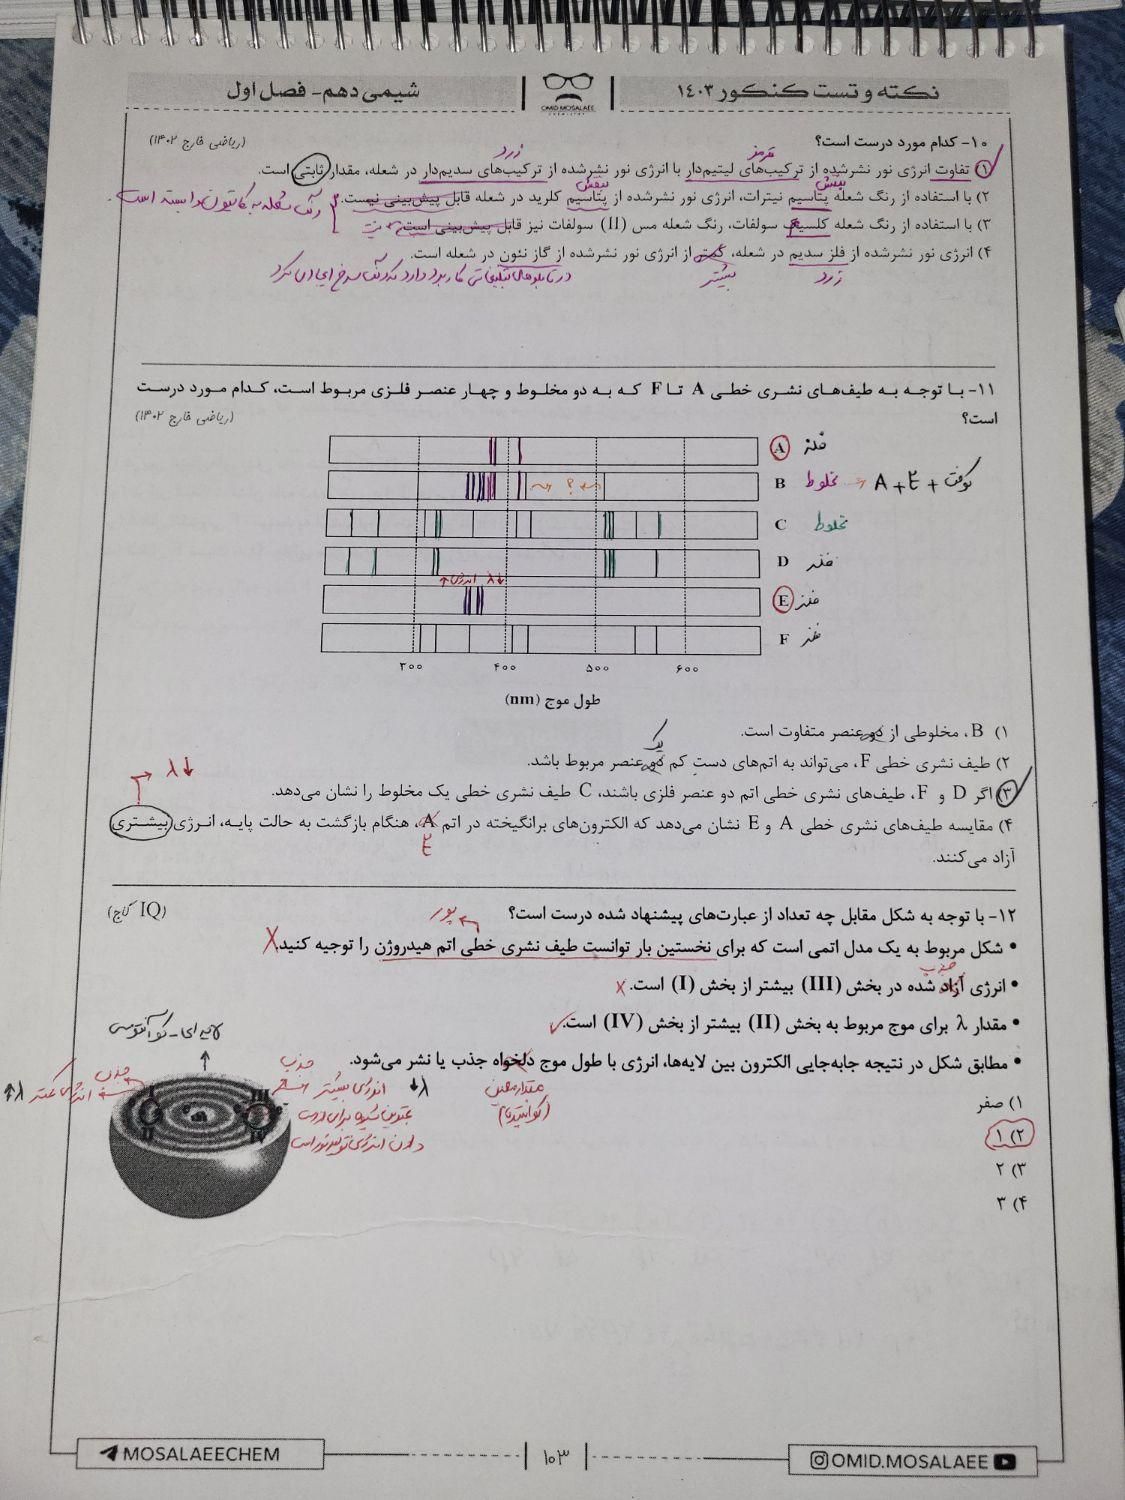 نکته و تست کنکور ۱۴۰۳
OMID MOSALAEE
CHEMISTRY
شیمی دهم - فصل اول
۱۰- کدام مورد درست است؟ (ریاضی خارج ۱۴۰۲)
قرمز زرد
۱) تفاوت انرژی نور نشرشده از ترکیب‌های لیتیم‌دار با انرژی نور نشرشده از ترکیب‌های سدیم‌دار در شعله، مقدار ثابتی است.
بنفش بنفش
۲) با استفاده از رنگ شعله پتاسیم نیترات، انرژی نور نشرشده از پتاسیم کلرید در شعله قابل پیش‌بینی نیست.
رنگ شعله به کاتیون وابسته است.
۳) با استفاده از رنگ شعله کلسیم سولفات، رنگ شعله مس (II) سولفات نیز قابل پیش‌بینی است.
۴) انرژی نور نشرشده از فلز سدیم در شعله، کمتر از انرژی نور نشرشده از گاز نئون در شعله است.
زرد بیشتر در تابلوهای تبلیغاتی کاربرد دارد که رنگ سرخ ایجاد می کرد
۱۱- با توجه به طیف‌های نشری خطی A تا F که به دو مخلوط و چهار عنصر فلزی مربوط است، کدام مورد درست
است؟ (ریاضی خارج ۱۴۰۲)
A فلز
B مخلوط A + E + کوفت
C مخلوط
D فلز
λ↓ انرژی↑
E فلز
F فلز
۳۰۰ ۴۰۰ ۵۰۰ ۶۰۰
طول موج (nm)
۱) B، مخلوطی از دو عنصر متفاوت است.
یک
۲) طیف نشری خطی F، می‌تواند به اتم‌های دست کم دو عنصر مربوط باشد.
λ↓
۳) اگر D و F، طیف‌های نشری خطی اتم دو عنصر فلزی باشند، C طیف نشری خطی یک مخلوط را نشان می‌دهد.
۴) مقایسه طیف‌های نشری خطی A و E نشان می‌دهد که الکترون‌های برانگیخته در اتم A، هنگام بازگشت به حالت پایه، انرژی بیشتری
E
آزاد می‌کنند.
۱۲- با توجه به شکل مقابل چه تعداد از عبارت‌های پیشنهاد شده درست است؟ (IQ گاج)
بور
• شکل مربوط به یک مدل اتمی است که برای نخستین بار توانست طیف نشری خطی اتم هیدروژن را توجیه کنید.
جذب
• انرژی آزاد شده در بخش (III) بیشتر از بخش (I) است.
• مقدار λ برای موج مربوط به بخش (II) بیشتر از بخش (IV) است.
• مطابق شکل در نتیجه جابه‌جایی الکترون بین لایه‌ها، انرژی با طول موج دلخواه جذب یا نشر می‌شود.
مقدار معین
(کوانتیده)
لایه ای - کوآنتومی
جذب
انرژی کمتر λ↑
جذب
انرژی بیشتر λ↓
I
II
III
IV
۱) صفر
۲) ۱
۳) ۲
۴) ۳
MOSALAEECHEM
۱۰۳
OMID.MOSALAEE